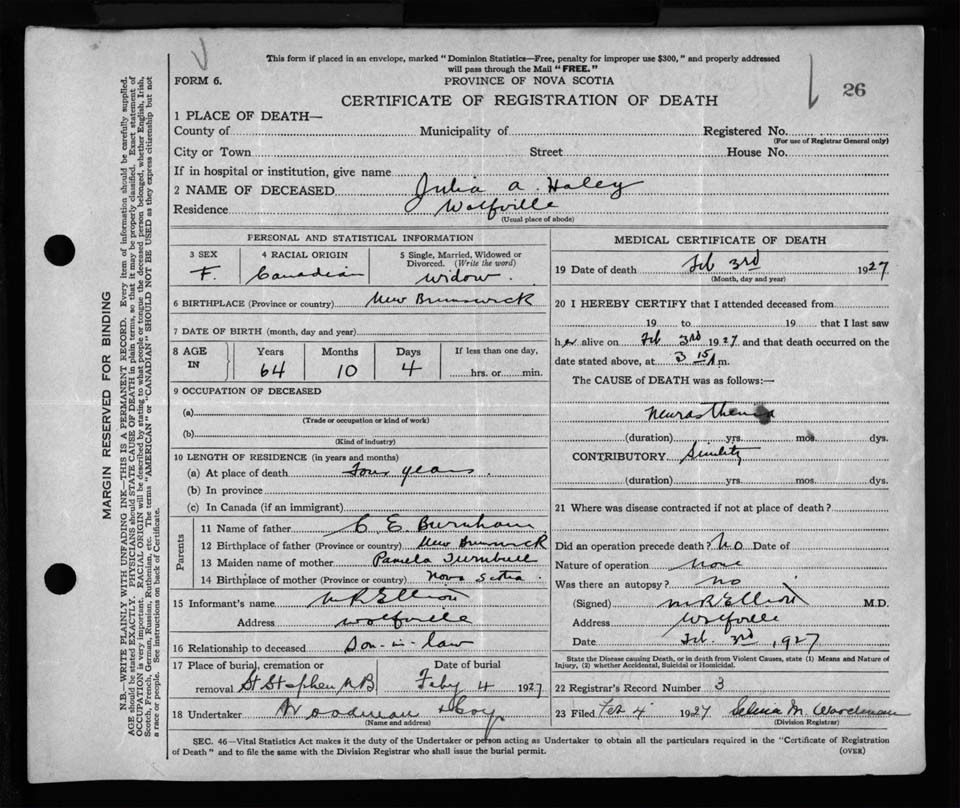 This form if placed in an envelope, marked "Dominion Statistics—Free, penalty for improper use $300," and properly addressed
will pass through the Mail "FREE."
FORM 6.
PROVINCE OF NOVA SCOTIA
CERTIFICATE OF REGISTRATION OF DEATH
26
1 PLACE OF DEATH—
County of Municipality of Registered No.
(For use of Registrar General only)
City or Town Street House No.
If in hospital or institution, give name
2 NAME OF DECEASED Julia A. Haley
Residence Wolfville
(Usual place of abode)
PERSONAL AND STATISTICAL INFORMATION
3 SEX F.
4 RACIAL ORIGIN Canadian
5 Single, Married, Widowed or
Divorced. (Write the word)
widow.
6 BIRTHPLACE (Province or country) New Brunswick
7 DATE OF BIRTH (month, day and year)
8 AGE IN Years Months Days If less than one day,
64 10 4 hrs. or min.
9 OCCUPATION OF DECEASED
(a)
(Trade or occupation or kind of work)
(b)
(Kind of industry)
10 LENGTH OF RESIDENCE (in years and months)
(a) At place of death four years.
(b) In province
(c) In Canada (if an immigrant)
Parents
11 Name of father C E Burnham
12 Birthplace of father (Province or country) New Brunswick
13 Maiden name of mother Pamela Turnbull
14 Birthplace of mother (Province or country) Nova Scotia.
15 Informant's name M R Elliott
Address wolfville
16 Relationship to deceased Son-in-law
17 Place of burial, cremation or Date of burial
removal St Stephen NB Feby 4 1927
18 Undertaker Woodman
(Name and address)
MEDICAL CERTIFICATE OF DEATH
19 Date of death Feb 3rd 1927
(Month, day and year)
20 I HEREBY CERTIFY that I attended deceased from
19 to 19 that I last saw
her alive on Feb 3rd 1927 and that death occurred on the
date stated above, at 3 15 m.
The CAUSE of DEATH was as follows:—
Neurasthenia
(duration) yrs. mos. dys.
CONTRIBUTORY Senility
(duration) yrs. mos. dys.
21 Where was disease contracted if not at place of death?
Did an operation precede death? No Date of
Nature of operation None
Was there an autopsy? No
(Signed) M R Elliott M.D.
Address Wolfville
Date Feb. 3rd, 1927
State the Disease causing Death, or in death from Violent Causes, state (1) Means and Nature of
Injury, (2) whether Accidental, Suicidal or Homicidal.
22 Registrar's Record Number 3
23 Filed Feb 4 1927 M. Woodman
(Division Registrar)
SEC. 46—Vital Statistics Act makes it the duty of the Undertaker or person acting as Undertaker to obtain all the particulars required in the "Certificate of Registration
of Death" and to file the same with the Division Registrar who shall issue the burial permit.
(OVER)
MARGIN RESERVED FOR BINDING
N.B.—WRITE PLAINLY WITH UNFADING INK—THIS IS A PERMANENT RECORD. Every item of information should be carefully supplied.
AGE should be stated EXACTLY. PHYSICIANS should STATE CAUSE OF DEATH in plain terms, so that it may be properly classified. Exact statement of
OCCUPATION is very important. RACIAL ORIGIN will be described by stating to what people or tongue the deceased person belonged, whether English, Irish,
Scotch, French, German, Russian, Ruthenian, etc. The terms "AMERICAN" or "CANADIAN" SHOULD NOT BE USED as they express citizenship but not
a race or people. See instructions on back of Certificate.